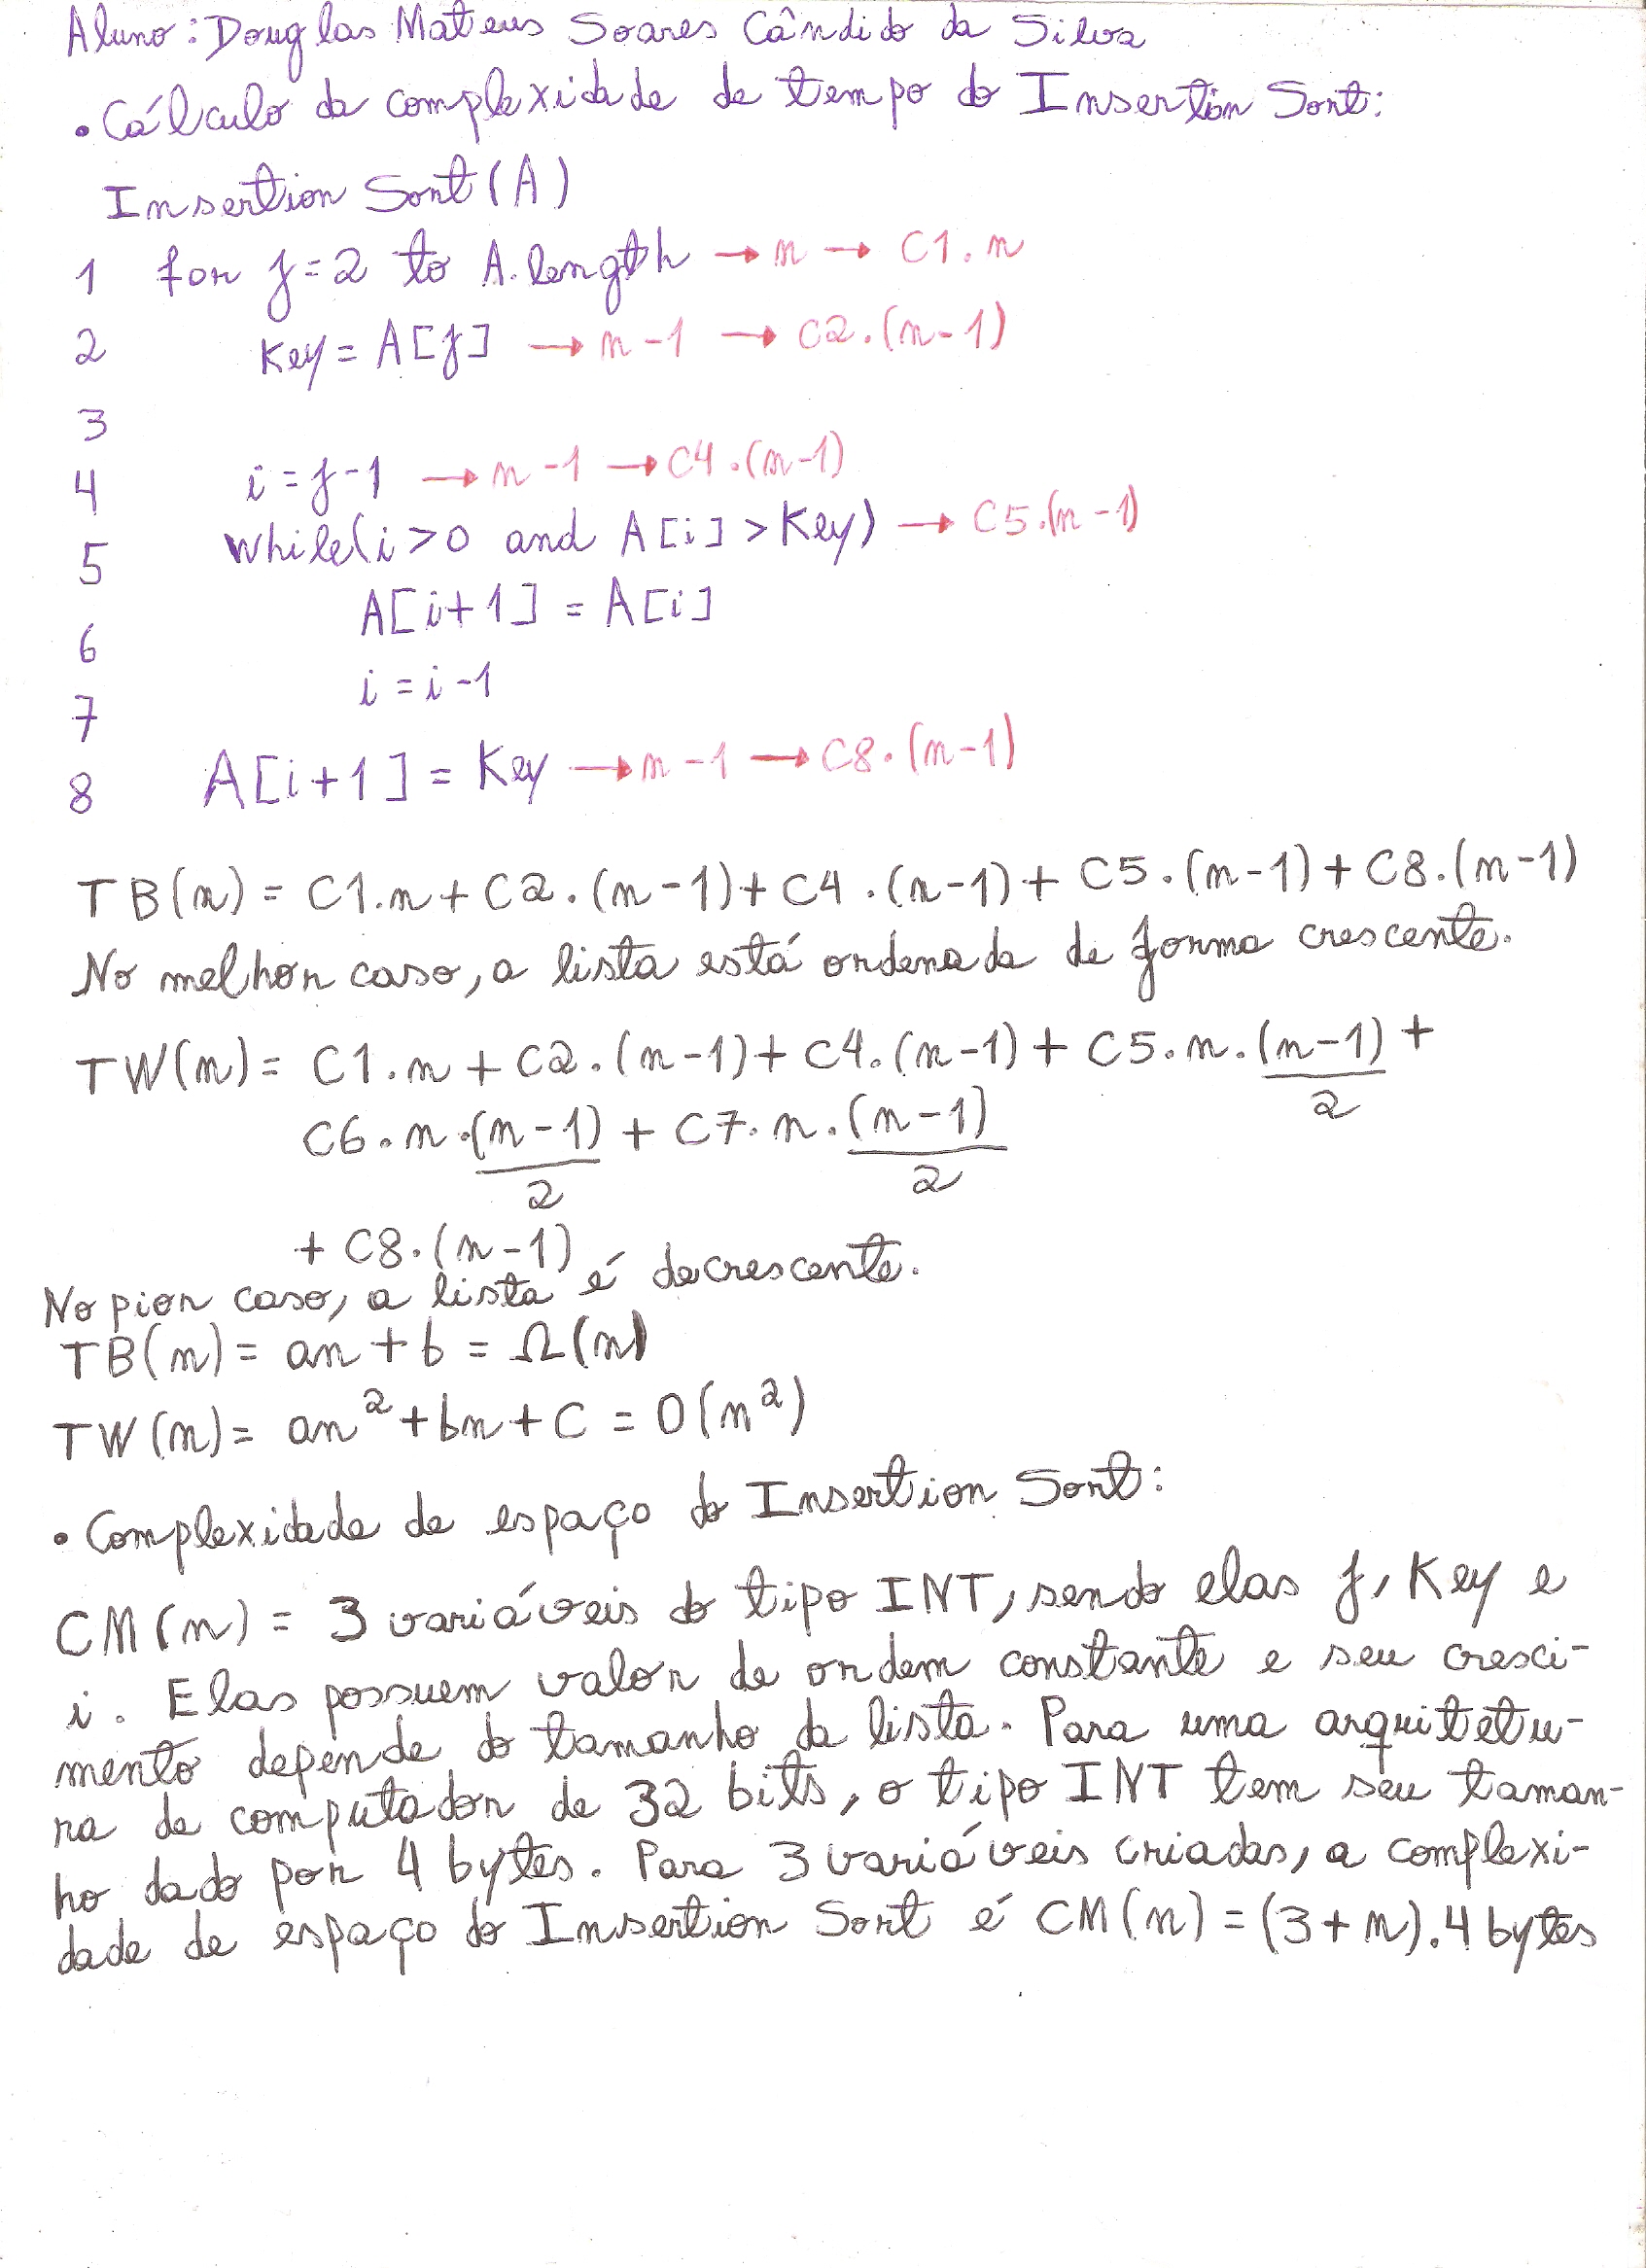 Aluno: Douglas Mateus Soares Cândido da Silva
• Cálculo da complexidade de tempo do Insertion Sort:
Insertion Sort (A)
1 for j=2 to A.length → n → C1.n
2 Key = A[j] → n-1 → C2.(n-1)
3
4 i = j-1 → n-1 → C4.(n-1)
5 While(i>0 and A[i] > Key) → C5.(n-1)
6 A[i+1] = A[i]
7 i = i-1
8 A[i+1] = Key → n-1 → C8.(n-1)
TB(n) = C1.n + C2.(n-1) + C4.(n-1) + C5.(n-1) + C8.(n-1)
No melhor caso, a lista está ordenada de forma crescente.
TW(n) = C1.n + C2.(n-1) + C4.(n-1) + C5.n.(n-1)/2 +
C6.n.(n-1)/2 + C7.n.(n-1)/2
+ C8.(n-1)
No pior caso, a lista é decrescente.
TB(n) = an + b = Ω(n)
TW(n) = an² + bn + C = O(n²)
• Complexidade de espaço do Insertion Sort:
CM(n) = 3 variáveis do tipo INT, sendo elas j, Key e
i. Elas possuem valor de ordem constante e seu cresci-
mento depende do tamanho da lista. Para uma arquitetu-
ra de computador de 32 bits, o tipo INT tem seu taman-
ho dado por 4 bytes. Para 3 variáveis criadas, a complexi-
dade de espaço do Insertion Sort é CM(n) = (3+n).4 bytes